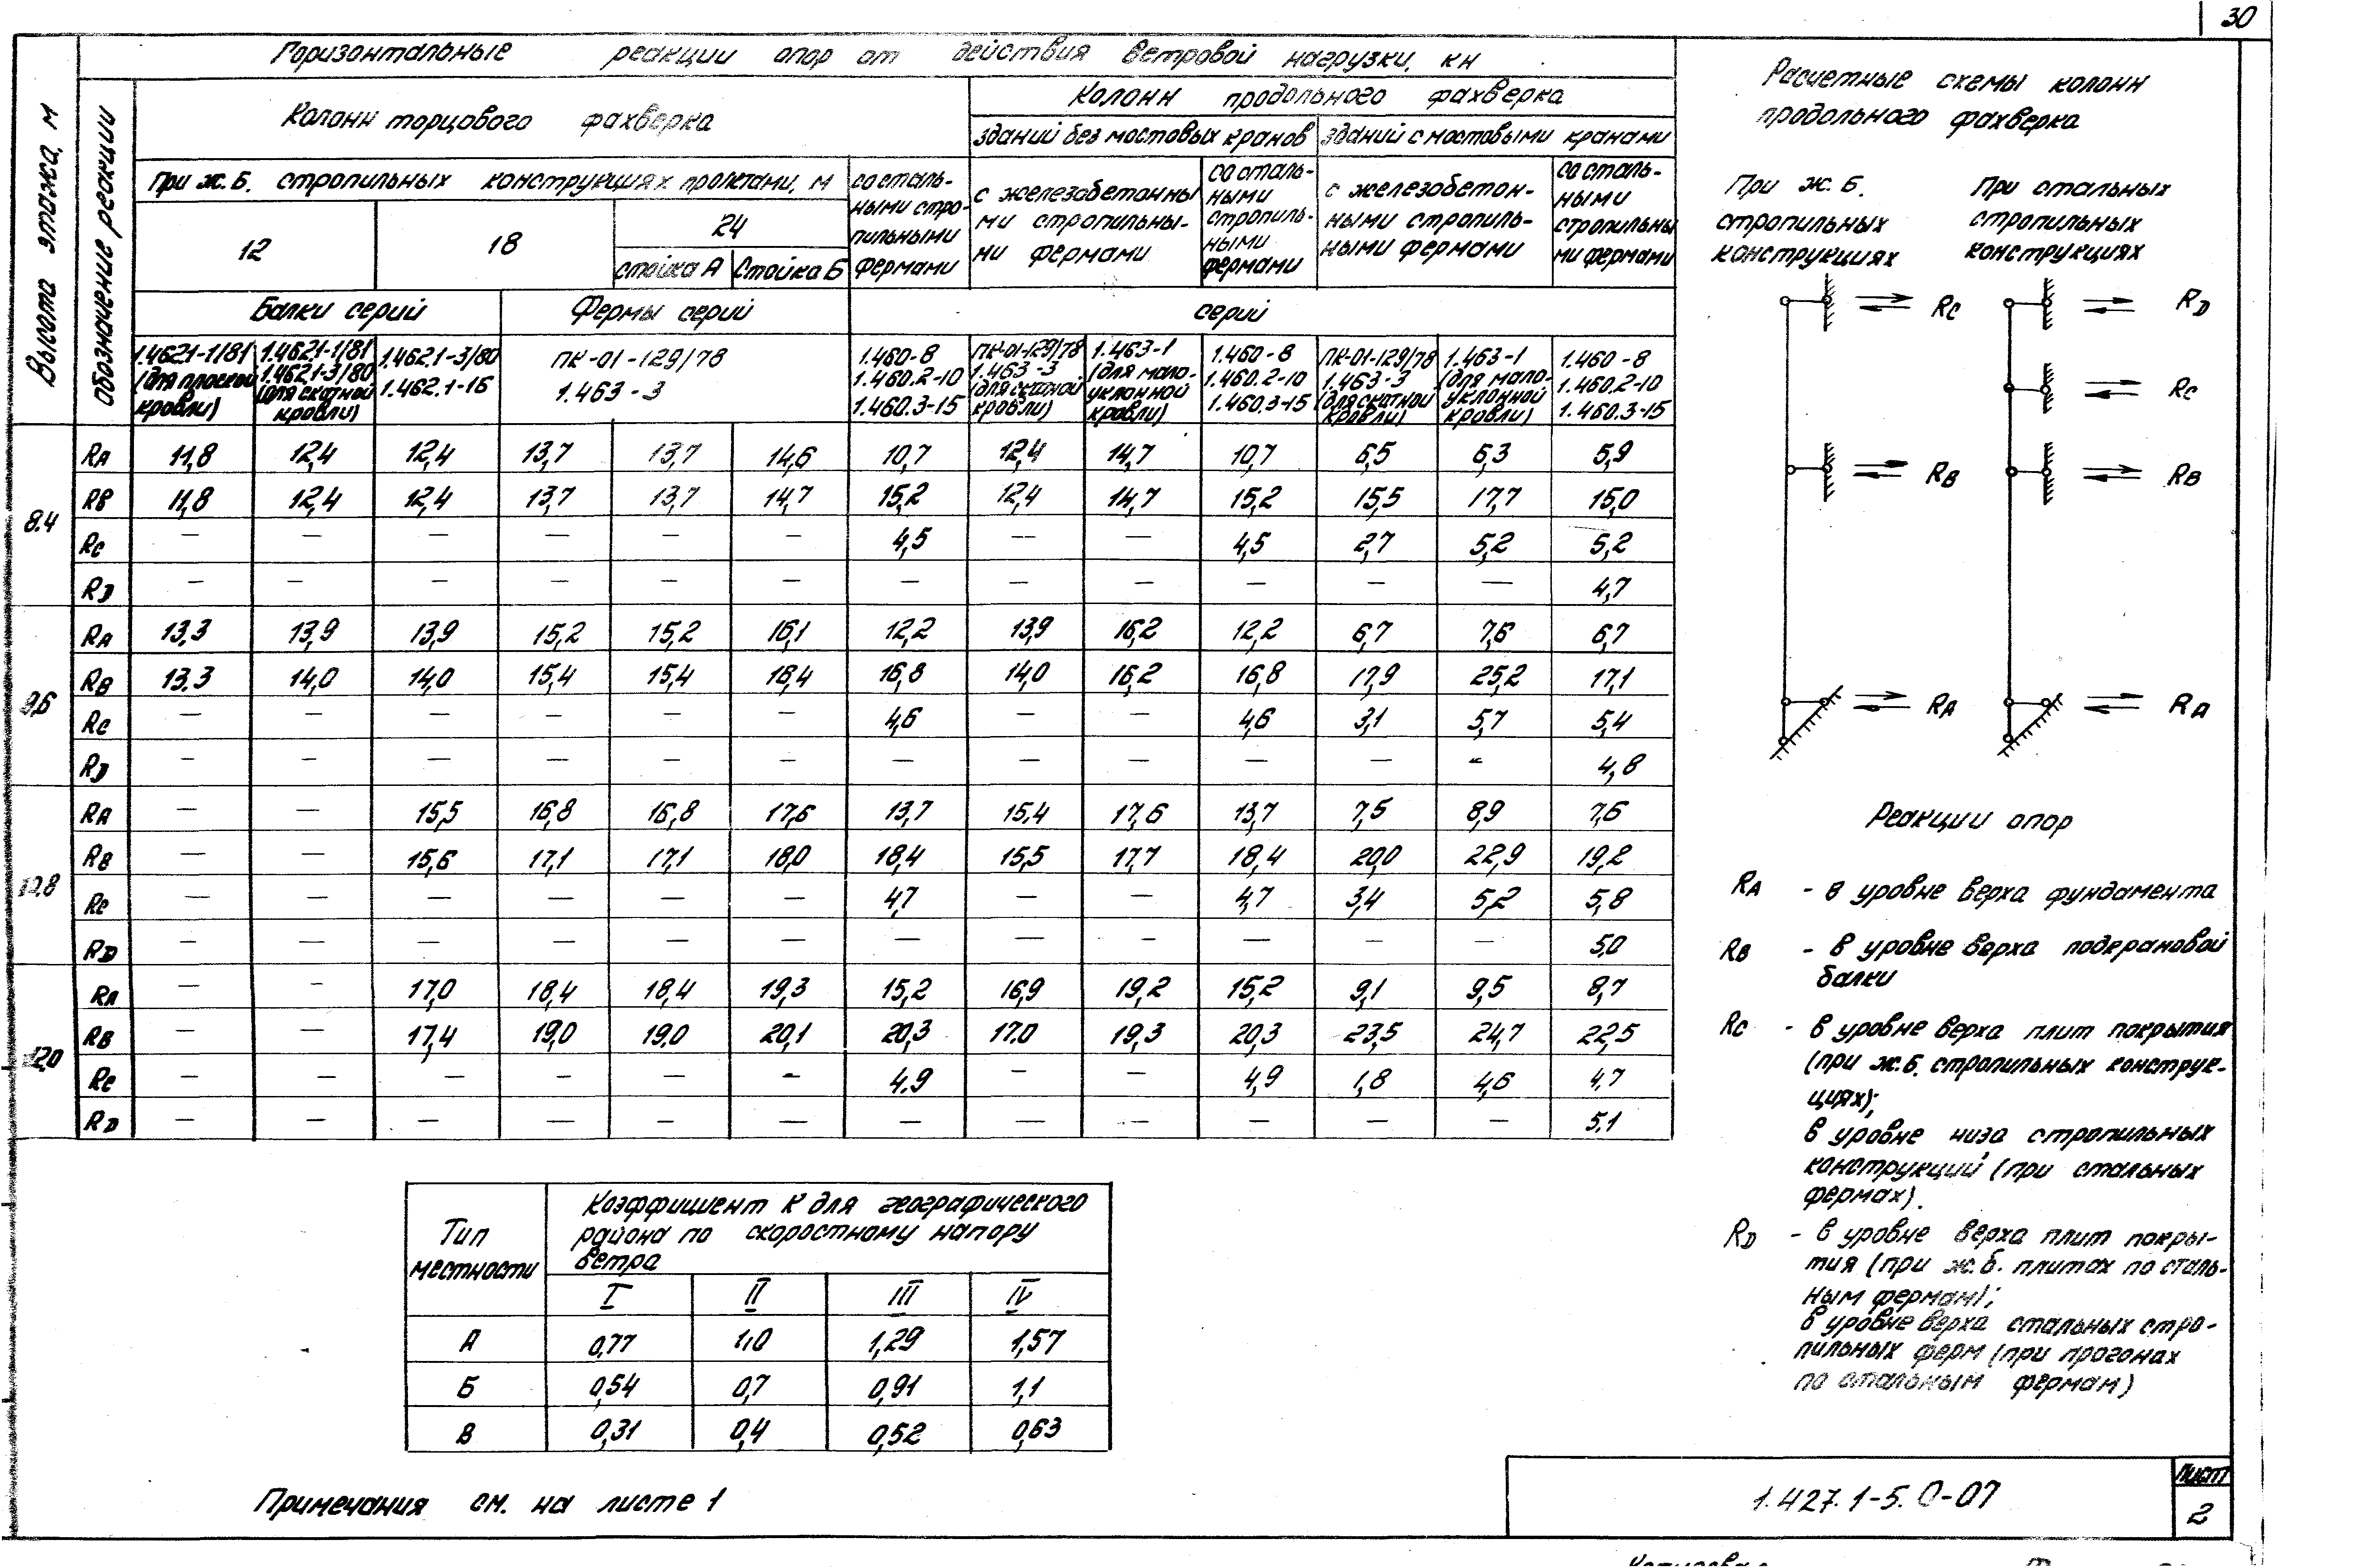 30
Горизонтальные реакции опор от действия ветровой нагрузки, кн
Высота этажа, м
Обозначение реакции
Колонн торцового фахверка
Колонн продольного фахверка
зданий без мостовых кранов
зданий с мостовыми кранами
При ж.б. стропильных конструкциях пролетами, м
12
18
24
стойка А
Стойка Б
со сталь-
ными стро-
пильными
фермами
с железобетонны
ми стропильны-
ми фермами
со сталь-
ными
стропиль-
ными
фермами
с железобетон-
ными стропиль-
ными фермами
со сталь-
ными
стропильны
ми фермами
Балки серий
Фермы серий
серий
1.462.1-1/81
(для плоской
кровли)
1.462.1-1/81
1.462.1-3/80
(для скатной
кровли)
1.462.1-3/80
1.462.1-16
ПК-01-129/78
1.463-3
1.460-8
1.460.2-10
1.460.3-15
ПК-01-129/78
1.463-3
(для скатной
кровли)
1.463-1
(для мало-
уклонной
кровли)
1.460-8
1.460.2-10
1.460.3-15
ПК-01-129/78
1.463-3
(для скатной
кровли)
1.463-1
(для мало-
уклонной
кровли)
1.460-8
1.460.2-10
1.460.3-15
8.4
RA 11,8 12,4 12,4 13,7 13,7 14,6 10,7 12,4 14,7 10,7 6,5 6,3 5,9
RВ 11,8 12,4 12,4 13,7 13,7 14,7 15,2 12,4 14,7 15,2 15,5 17,7 15,0
Rc — — — — — — 4,5 — — 4,5 2,7 5,2 5,2
RD — — — — — — — — — — — — 4,7
9,6
RA 13,3 13,9 13,9 15,2 15,2 16,1 12,2 13,9 16,2 12,2 6,7 7,6 6,7
RВ 13.3 14,0 14,0 15,4 15,4 16,4 16,8 14,0 16,2 16,8 17,9 25,2 17,1
Rc — — — — — — 4,6 — — 4,6 3,1 5,7 5,4
RD — — — — — — — — — — — — 4,8
10,8
RA — — 15,5 16,8 16,8 17,6 13,7 15,4 17,6 13,7 7,5 8,9 7,6
RВ — — 15,6 17,1 17,1 18,0 18,4 15,5 17,7 18,4 20,0 22,9 19,2
Rc — — — — — — 4,7 — — 4,7 3,4 5,2 5,8
RD — — — — — — — — — — — — 5,0
12,0
RA — — 17,0 18,4 18,4 19,3 15,2 16,9 19,2 15,2 9,1 9,5 8,7
RВ — — 17,4 19,0 19,0 20,1 20,3 17.0 19,3 20,3 23,5 24,7 22,5
Rc — — — — — — 4.9 — — 4,9 1,8 4,6 4.7
RD — — — — — — — — — — — — 5.1
Расчетные схемы колонн
продольного фахверка
При ж.б.
стропильных
конструкциях
При стальных
стропильных
конструкциях
Rc
RD
Rc
RВ
RВ
RA
RA
Реакции опор
RA - в уровне верха фундамента
RВ - в уровне верха подкрановой
балки
Rc - в уровне верха плит покрытия
(при ж.б. стропильных конструк-
циях);
в уровне низа стропильных
конструкций (при стальных
фермах).
RD - в уровне верха плит покры-
тия (при ж.б. плитах по сталь-
ным фермам);
в уровне верха стальных стро-
пильных ферм (при прогонах
по стальным фермам)
Тип
местности
Коэффициент К для географического
района по скоростному напору
ветра
I II III IV
А 0,77 1,0 1,29 1,57
Б 0,54 0,7 0,91 1,1
В 0,31 0,4 0,52 0,63
Примечания см. на листе 1
1.427.1-5.0-07
Лист
2